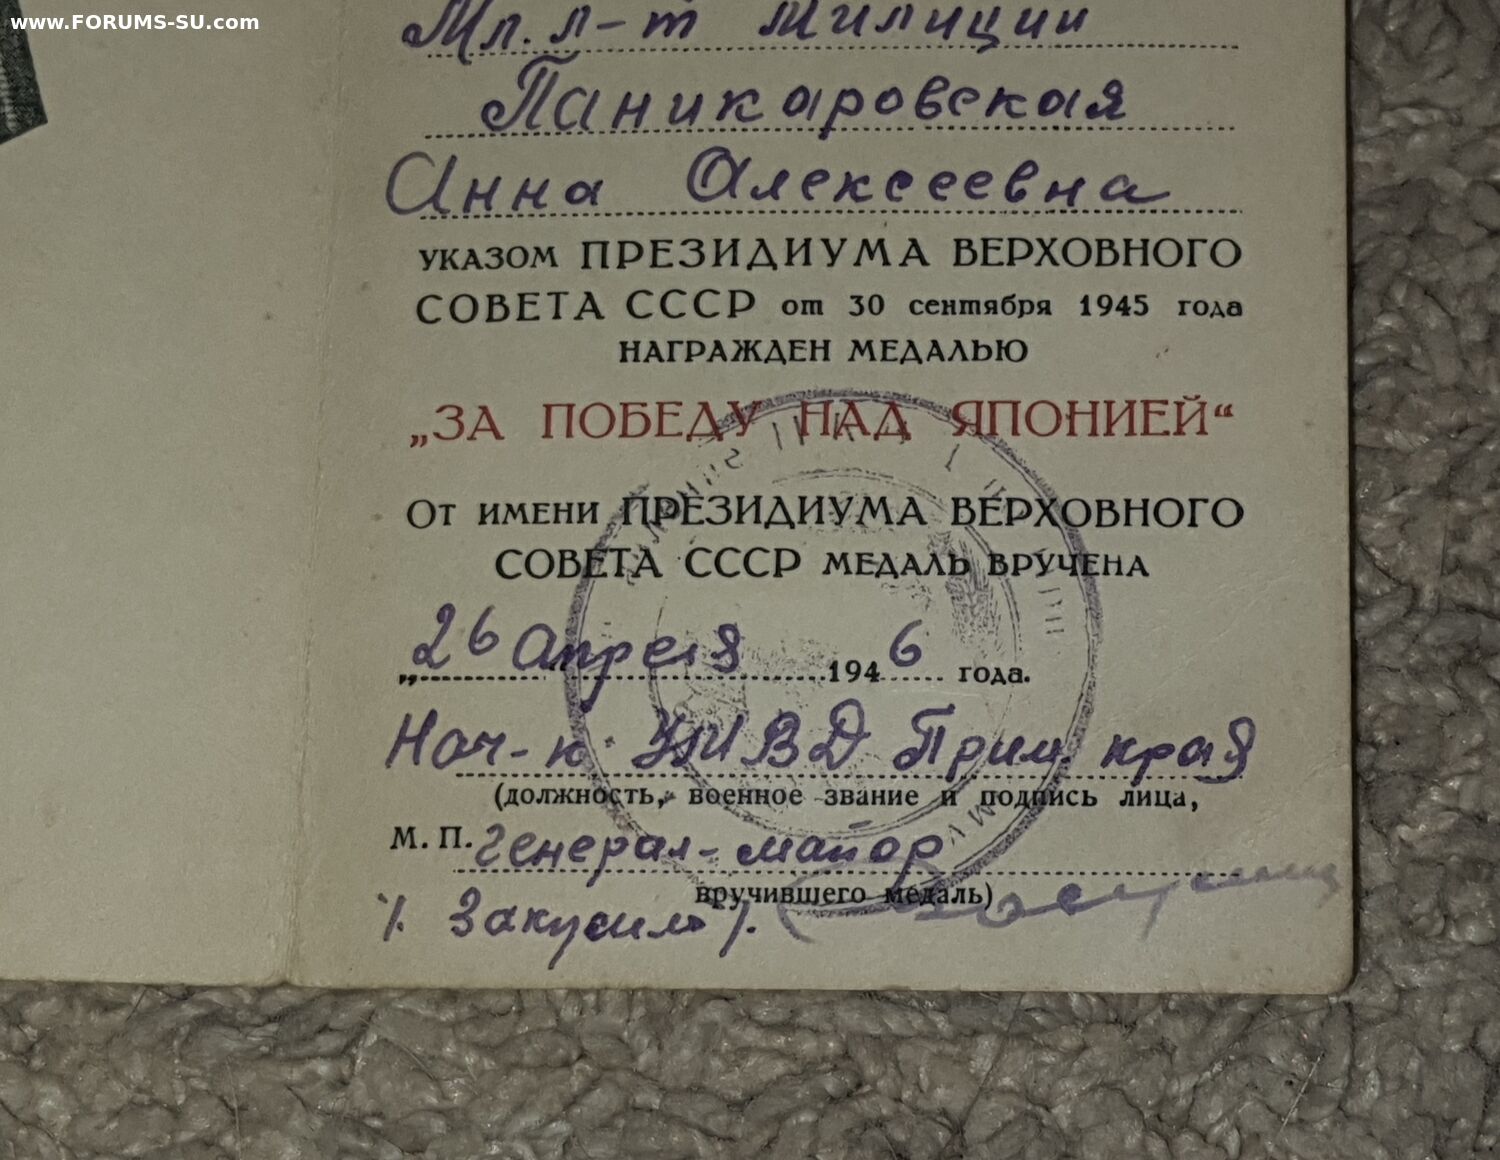 www.FORUMS-SU.com
Мл. л-т милиции
Паникаровская
Анна Алексеевна
УКАЗОМ ПРЕЗИДИУМА ВЕРХОВНОГО
СОВЕТА СССР от 30 сентября 1945 года
НАГРАЖДЕН МЕДАЛЬЮ
„ЗА ПОБЕДУ НАД ЯПОНИЕЙ“
От имени ПРЕЗИДИУМА ВЕРХОВНОГО
СОВЕТА СССР МЕДАЛЬ ВРУЧЕНА
„26 Апреля 1946 года.
Нач-к УМВД Прим. края
(должность, военное звание и подпись лица,
М. П. генерал-майор
вручившего медаль)
/. Закусило /.